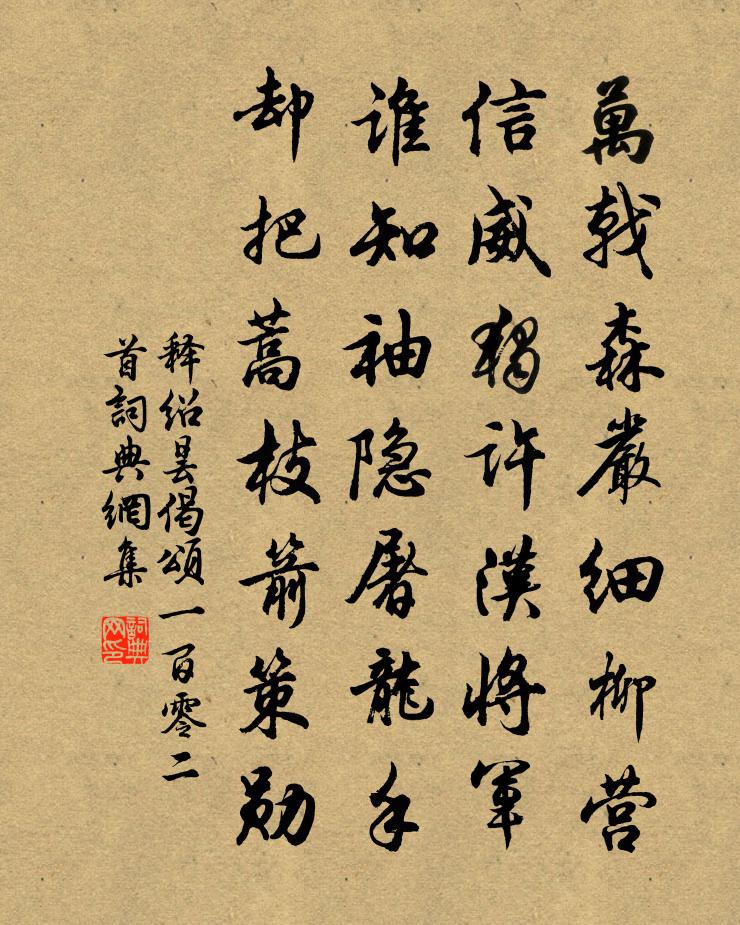 萬戟森嚴细柳营
信威獨許漢將軍
谁知袖隐屠龍手
却把蒿枝箭策勋
释绍昙偈頌一百零二
首詞典網集
詞典
网印